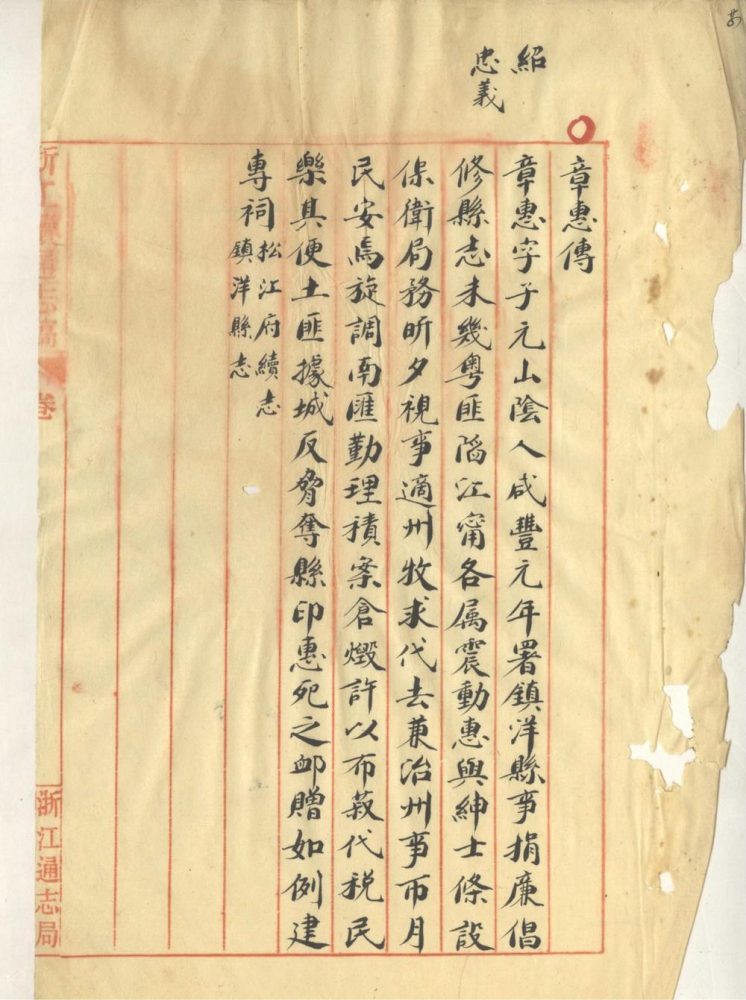 紹
忠義
章惠傳
章惠字子元山陰人咸豐元年署鎮洋縣事捐廉倡
修縣志未幾粵匪陷江甯各属震動惠與紳士條設
保衛局務昕夕視事適州牧求代去兼治州事帀月
民安焉旋調南匯勤理積案倉燬許以布菽代税民
樂其便土匪據城反脅奪縣印惠死之卹贈如例建
專祠松江府續志
鎮洋縣志
浙江續通志稿
卷
浙江通志局